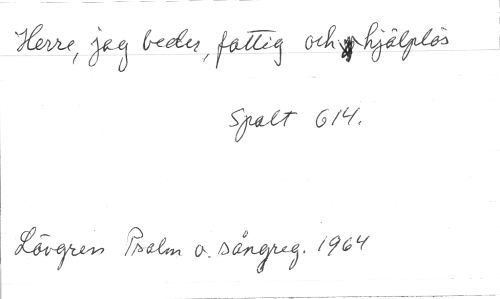 Herre, jag beder, fattig och hjälplös
Spalt 614.
Lövgren Psalm o. sångreg. 1964